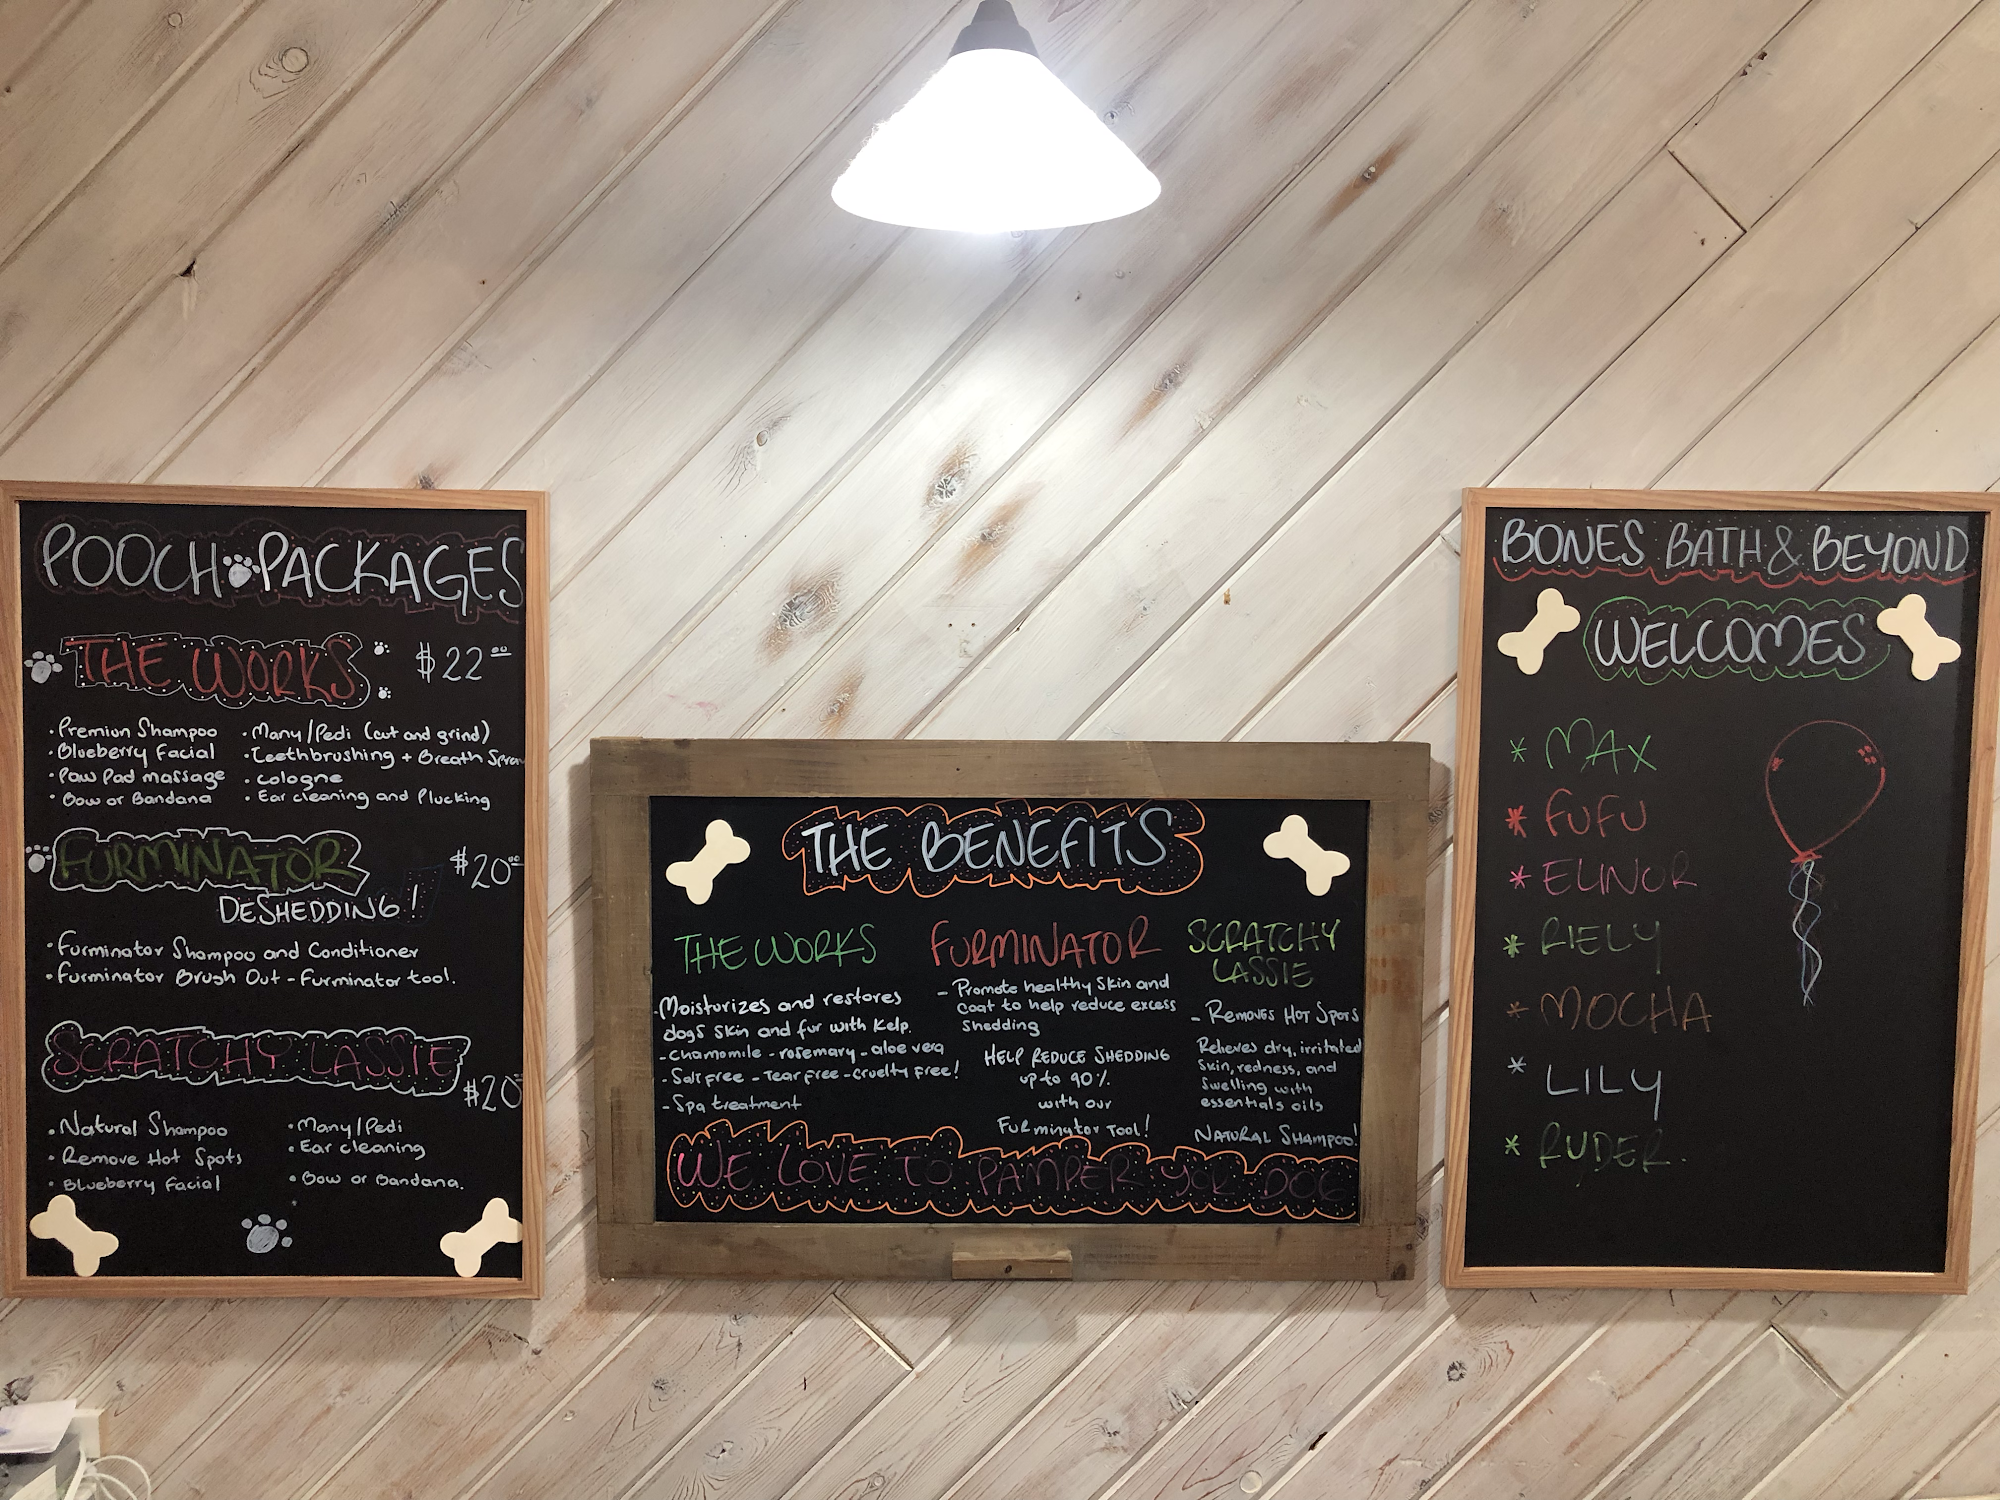 POOCH PACKAGES
THE WORKS $22.00
• Premiun Shampoo
• Blueberry Facial
• Paw Pad massage
• Bow or Bandana
• Many/Pedi (cut and grind)
• Teethbrushing + Breath Spray
• Cologne
• Ear cleaning and Plucking
FURMINATOR $20.00
DESHEDDING!
• Furminator Shampoo and Conditioner
• Furminator Brush Out - Furminator tool.
SCRATCHY LASSIE
$20
• Natural Shampoo
• Remove Hot Spots
• Blueberry Facial
• Many/Pedi
• Ear cleaning
• Bow or Bandana.
THE BENEFITS
THE WORKS
- Moisturizes and restores
dogs skin and fur with Kelp.
- chamomile - rosemary - aloe vera
- Salt free - Tear free - Cruelty free!
- Spa treatment
FURMINATOR
- Promote healthy Skin and
Coat to help reduce excess
Shedding
HELP REDUCE SHEDDING
up to 90%
with our
Furminator Tool!
SCRATCHY
LASSIE
- REMOVES HOT SPOTS
Relieves dry, irritated
Skin, redness, and
Swelling with
essentials oils
NATURAL SHAMPOO!
WE LOVE TO PAMPER YOR DOG
BONES BATH & BEYOND
WELCOMES
* MAX
* FUFU
* ELINOR
* RIELY
* MOCHA
* LILY
* RYDER.